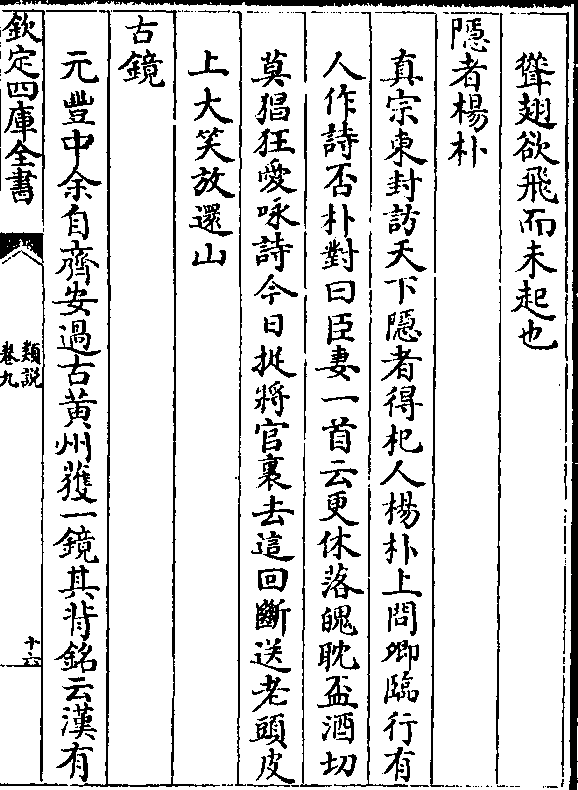 聳翅欲飛而未起也
隱者楊朴
真宗東封訪天下隱者得杞人楊朴上問卿臨行有
人作詩否朴對曰臣妻一首云更休落魄耽盃酒切
莫猖狂愛咏詩今日捉將官裏去這回斷送老頭皮
上大笑放還山
古鏡
元豐中余自齊安過古黄州獲一鏡其背銘云漢有
欽定四庫全書
類說
卷九
十六